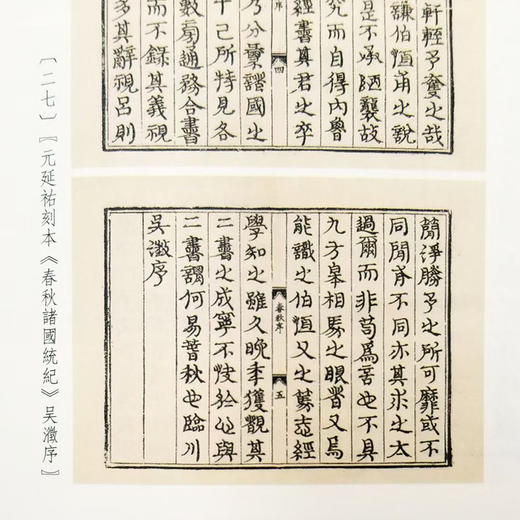 軒輊予奪之哉
謙伯恒甫之說
是不承陋襲故
究而自得內魯
經書其君之卒
序 四
乃分彙諸國之
十己所特見各
數通務合書
而不錄其義視
多其辭視呂則
簡淨勝予之所可靡或不
同閒有不同亦其求之太
過爾而非苟為言也不具
九方皋相馬之眼者又烏
能識之伯恒父之篤志經
春秋序 五
學知之雖久晚季獲觀其
二書之成寧不快於心與
二書謂何易萅秋也臨川
吳澂序
〔二七〕『元延祐刻本《春秋諸國統紀》吳澂序』